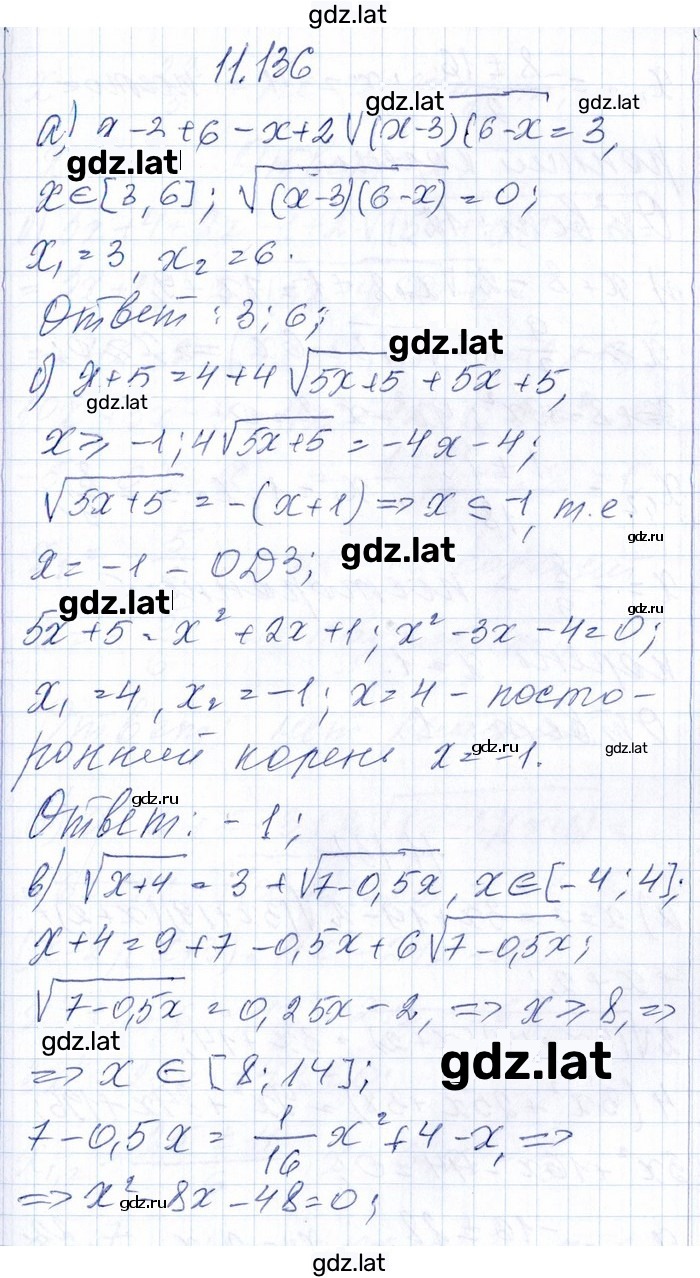 gdz.lat
11.136
gdz.lat
а) x-2+6-x+2√((x-3)(6-x = 3,
gdz.lat
x∈[3,6]; √((x-3)(6-x)) = 0;
x₁=3, x₂=6.
Ответ: 3; 6;
gdz.lat
б) x+5=4+4√(5x+5)+5x+5,
gdz.lat
x≥-1; 4√(5x+5) = -4x-4;
√(5x+5) = -(x+1) => x ≤ -1, т.е.
gdz.ru
x=-1 - ОДЗ;
gdz.lat
gdz.lat
gdz.ru
5x+5=x²+2x+1; x²-3x-4=0;
x₁=4, x₂=-1; x=4 - посто-
ронний корень x=-1.
gdz.ru
gdz.lat
gdz.ru
Ответ: -1;
в) √(x+4) = 3+√(7-0,5x), x∈[-4;4];
x+4=9+7-0,5x+6√(7-0,5x);
√(7-0,5x) = 0,25x-2, => x≥8, =>
gdz.lat
=> x ∈ [8;14];
gdz.lat
7-0,5x = 1/16 x²+4-x, =>
=> x²-8x-48=0;
gdz.lat